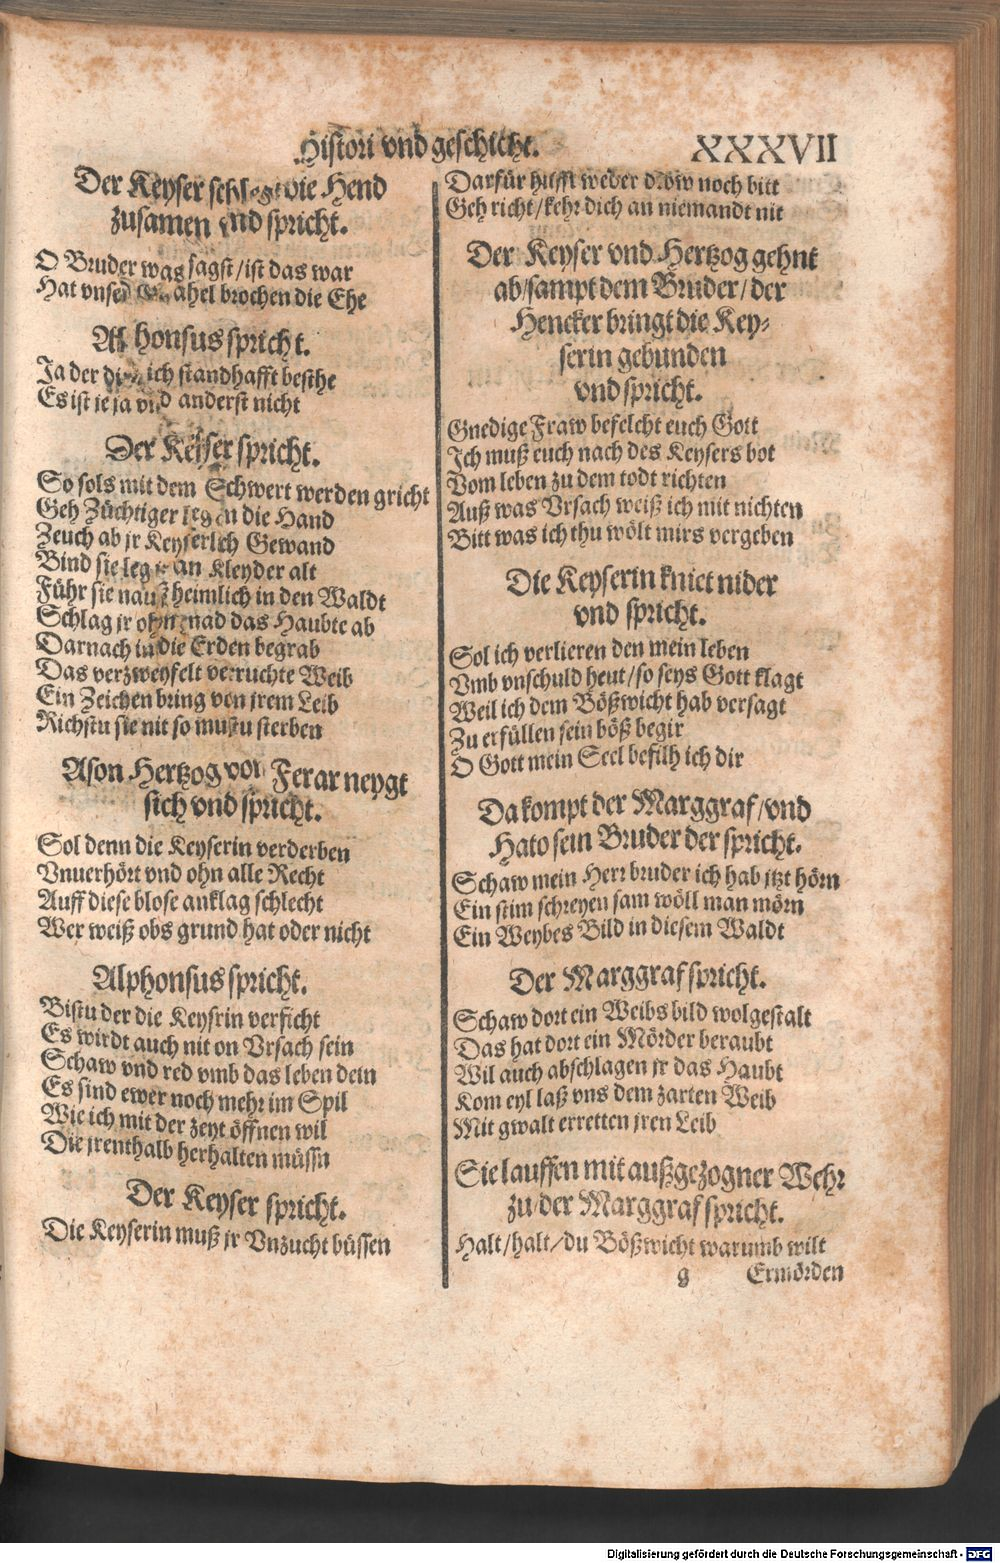 Histori vnd geschicht. XXXVII
Der Keyser schlegt die Hend
zusamen vnd spricht.
O Bruder was sagst/ist das war
Hat vnser ahel brochen die Ehe
Alphonsus spricht.
Ja der ding ich standhafft besthe
Es ist je ja vnd anderst nicht
Der Keyser spricht.
So sols mit dem Schwert werden gricht
Geh Züchtiger leg an die Hand
Zeuch ab jr Keyserlich Gewand
Bind sie leg jr an Kleyder alt
Führ sie nauß heimlich in den Waldt
Schlag jr ohn gnad das Haubte ab
Darnach in die Erden begrab
Das verzweyfelt verruchte Weib
Ein Zeichen bring von jrem Leib
Richstu sie nit so mustu sterben
Ason Hertzog von Ferar neygt
sich vnd spricht.
Sol denn die Keyserin verderben
Vnuerhört vnd ohn alle Recht
Auff diese blose anklag schlecht
Wer weiß obs grund hat oder nicht
Alphonsus spricht.
Bistu der die Keysrin verficht
Es wirdt auch nit on Vrsach sein
Schaw vnd red vmb das leben dein
Es sind ewer noch mehr im Spil
Wie ich mit der zeyt öffnen wil
Die jrenthalb herhalten müssn
Der Keyser spricht.
Die Keyserin muß jr Vnzucht büssen
Darfür hilfft weder drow noch bitt
Geh richt/kehr dich an niemandt nit
Der Keyser vnd Hertzog gehnt
ab/sampt dem Bruder/der
Hencker bringt die Key⸗
serin gebunden
vnd spricht.
Gnedige Fraw befelcht euch Gott
Ich muß euch nach des Keysers bot
Vom leben zu dem todt richten
Auß was Vrsach weiß ich mit nichten
Bitt was ich thu wölt mirs vergeben
Die Keyserin kniet nider
vnd spricht.
Sol ich verlieren den mein leben
Vmb vnschuld heut/so seys Gott klagt
Weil ich dem Bößwicht hab versagt
Zu erfüllen sein böß begir
O Gott mein Seel befilh ich dir
Da kompt der Marggraf/vnd
Hato sein Bruder der spricht.
Schaw mein Herr bruder ich hab jtzt hörn
Ein stim schreyen sam wöll man mörn
Ein Weybes Bild in diesem Waldt
Der Marggraf spricht.
Schaw dort ein Weibs bild wolgestalt
Das hat dort ein Mörder beraubt
Wil auch abschlagen jr das Haubt
Kom eyl laß vns dem zarten Weib
Mit gwalt erretten jren Leib
Sie lauffen mit außgezogner Wehr
zu/der Marggraf spricht.
Halt/halt/du Bößwicht warumb wilt
g Ermörden
Digitalisierung gefördert durch die Deutsche Forschungsgemeinschaft - DFG